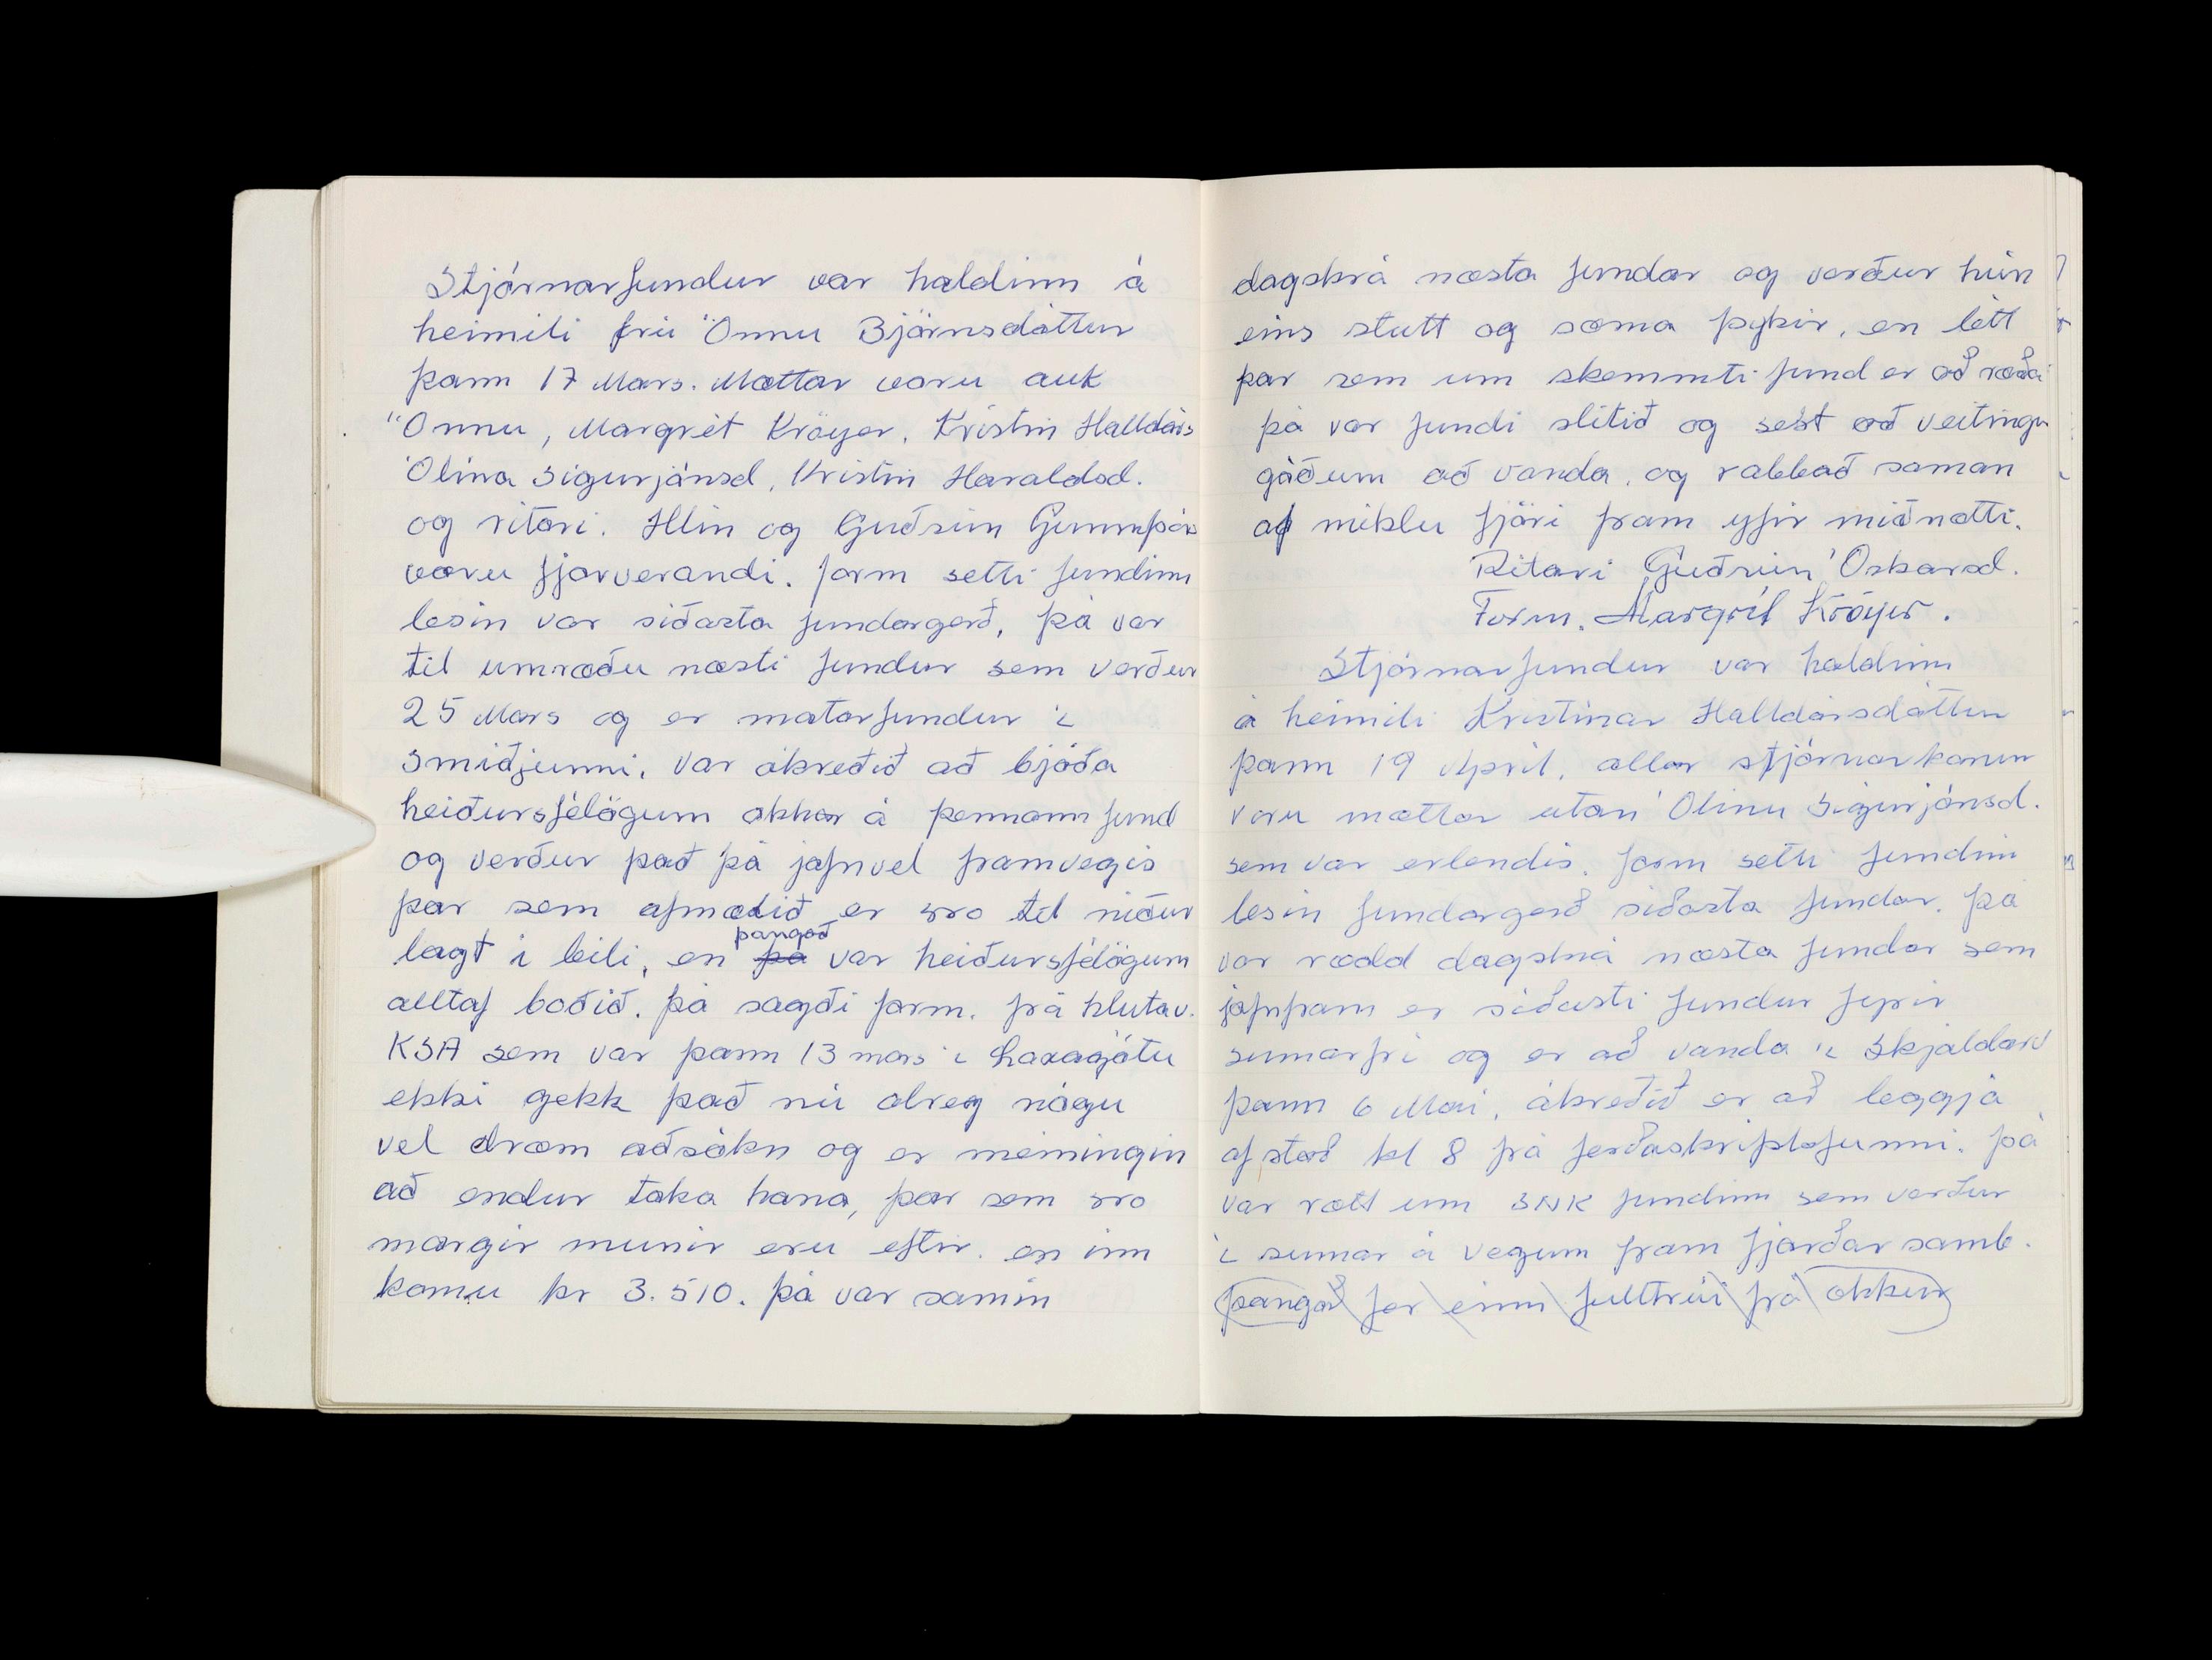 Stjórnarfundur var haldinn á
heimili frú Önnu Björnsdóttur
þann 17 Mars. Mættar voru auk
Önnu, Margrét Kröyer, Kristín Halldórs
Ólína Sigurjónsd, Kristín Haraldsd.
og ritari. Hlín og Guðrún Gunnþórs
voru fjarverandi. form setti fundinn
lesin var síðasta fundargerð, þá var
til umræðu næsti fundur sem verður
25 Mars og er matarfundur í
Smiðjunni, var ákveðið að bjóða
heiðursfélögum okkar á þennann fund
og verður það þá jafnvel framvegis
þar sem afmælið er svo til niður
lagt í bili, en þá þangað var heiðursfélögum
alltaf boðið. þá sagði form. frá hlutav.
KSA sem var þann 13 mars í Laxagötu
ekki gekk það nú alveg nógu
vel dræm aðsókn og er meiningin
að endur taka hana, þar sem svo
margir munir eru eftir. en inn
komu kr 3.510. þá var samin
dagskrá næsta fundar og verður hún
eins stutt og sæma þykir, en létt
þar sem um skemmti fund er að ræða
þá var fundi slitið og sest að veitingu
góðum að vanda, og rabbað saman
af miklu fjöri fram yfir miðnætti.
Ritari Guðrún Óskarsd.
Form. Margrét Kröyer.
Stjórnarfundur var haldinn
á heimili Kristínar Halldórsdóttur
þann 19 Apríl, allar stjórnarkonur
voru mættar utan Ólínu Sigurjónsd.
sem var erlendis. form setti fundinn
lesin fundargerð síðasta fundar. þá
var rædd dagskrá næsta fundar sem
jafnfram er síðasti fundur fyrir
sumarfrí og er að vanda í Skjaldarv
þann 6 Maí, ákveðið er að leggja
af stað kl 8 frá ferðaskrifstofunni. þá
var rætt um SNK fundinn sem verður
í sumar á vegum fram fjarðar samb.
þangað fer einn fulltrúi frá okkur